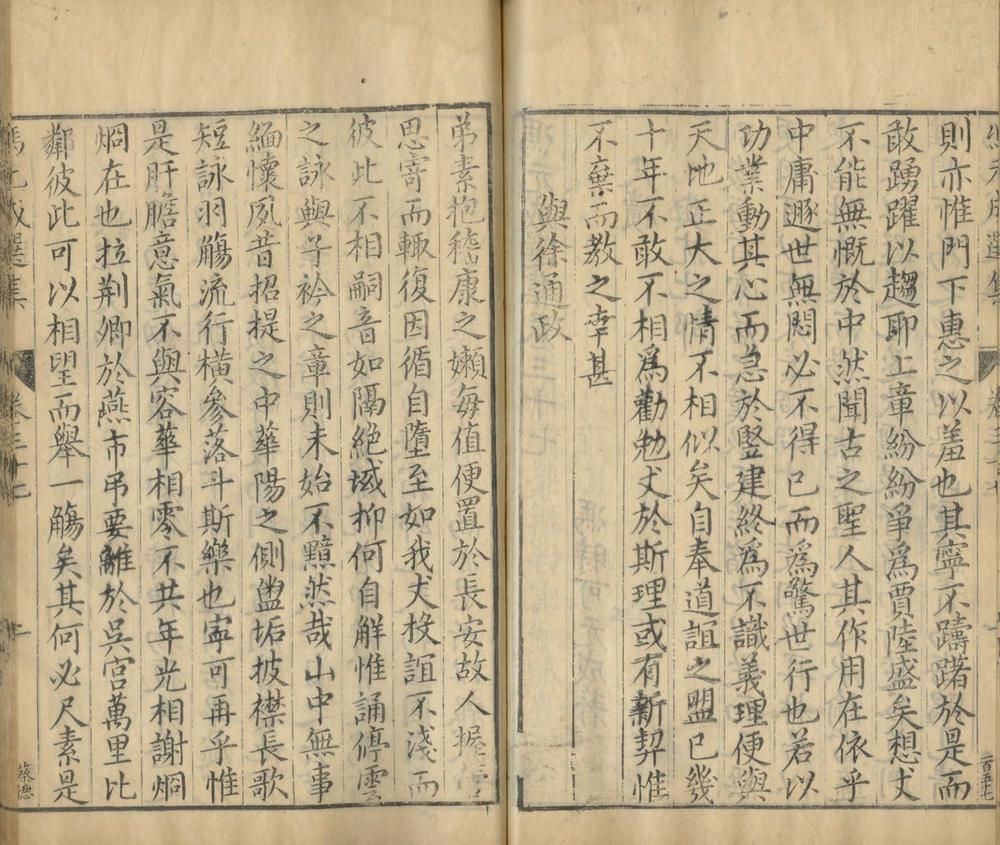 則亦惟門下惠之以羞也其寧不躊躇於是而
敢踴躍以趨耶上章紛紛爭爲賈陸盛矣想丈
不能無慨於中然聞古之聖人其作用在依乎
中庸遯世無悶必不得已而爲驚世行也若以
功業動其心而急於竪建終爲不識義理便與
天地正大之情不相似矣自奉道誼之盟已幾
十年不敢不相爲勸勉丈於斯理或有新契惟
不棄而教之幸甚
與徐通政
弟素抱稽康之嬾每值便置於長安故人握
思寄而輙復因循自墮至如我丈校誼不淺而
彼此不相嗣音如隔絶域抑何自解惟誦停雲
之詠與子衿之章則未始不黯然哉山中無事
緬懷夙昔招提之中華陽之側盥垢披襟長歌
短詠羽觴流行橫參落斗斯樂也寧可再乎惟
是肝膽意氣不與容華相零不共年光相謝烱
烱在也拉荆卿於燕市吊要離於吳宮萬里比
鄰彼此可以相望而舉一觴矣其何必尺素是
馮元成選集
卷三十七
二百五七
蔡德